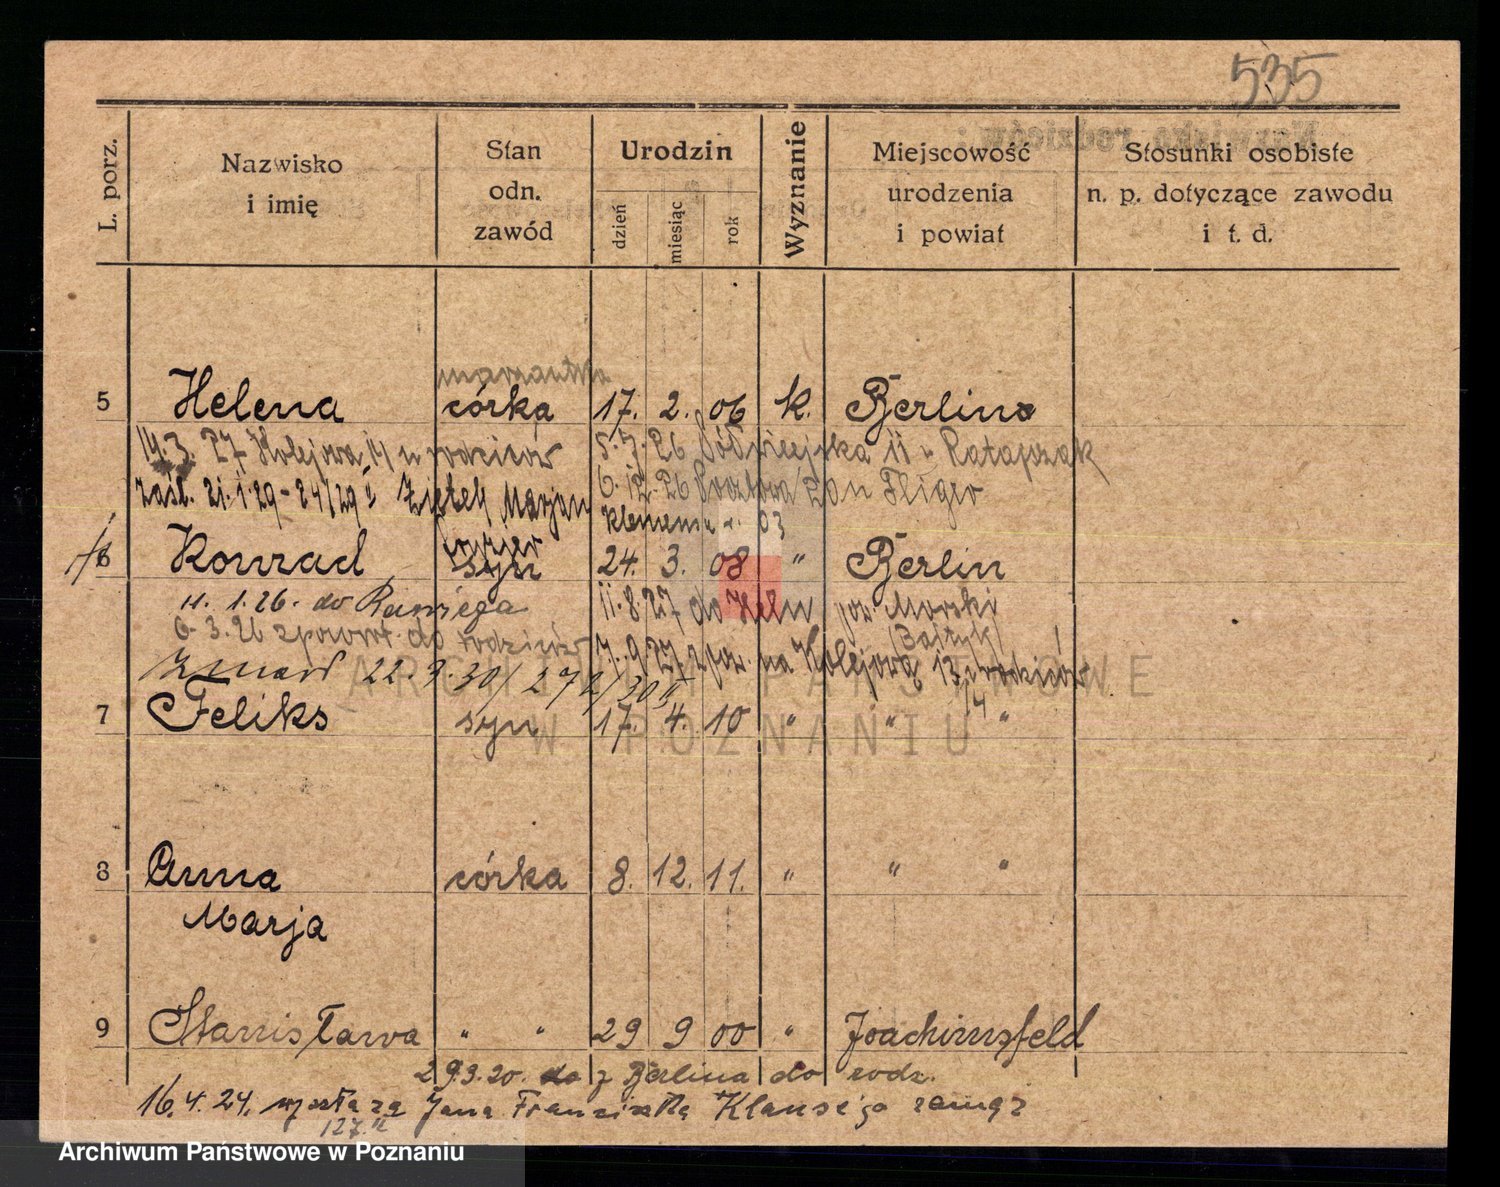 535
L. porz.
Nazwisko
i imię
Stan
odn.
zawód
Urodzin
dzień
miesiąc
rok
Wyznanie
Miejscowość
urodzenia
i powiat
Stosunki osobiste
n. p. dotyczące zawodu
i t. d.
5 Helena córka 17. 2. 06 k. Berlin
14.3.27 Kolejowa u rodziców
5.7.26 11 u Ratajczak
6.12.26 Pocztowa
zaśl. 21.1.29 - 24/29 Ziętek Marjan
Klemens 03
fryzjer
6 Konrad syn 24. 3. 08 " Berlin
11.1.26. do
11.8.27 do Helu pow. Morski
6.3.26 z powrot. do rodziców
(Bałtyk)
7.9.27 z pow. na Kolejową 13 u rodziców
14
22.9.30/
7 Feliks syn 17. 4. 10 " " "
8 Anna córka 8. 12. 11. " " "
Marja
9 Stanisława " " 29 9 00 " Joachimsfeld
29.9.20. z Berlina do rodz.
16.4.24. wyszła za Jana Franciszka Klause'go zamąż
127.II
ARCHIWUM PAŃSTWOWE
W POZNANIU
Archiwum Państwowe w Poznaniu